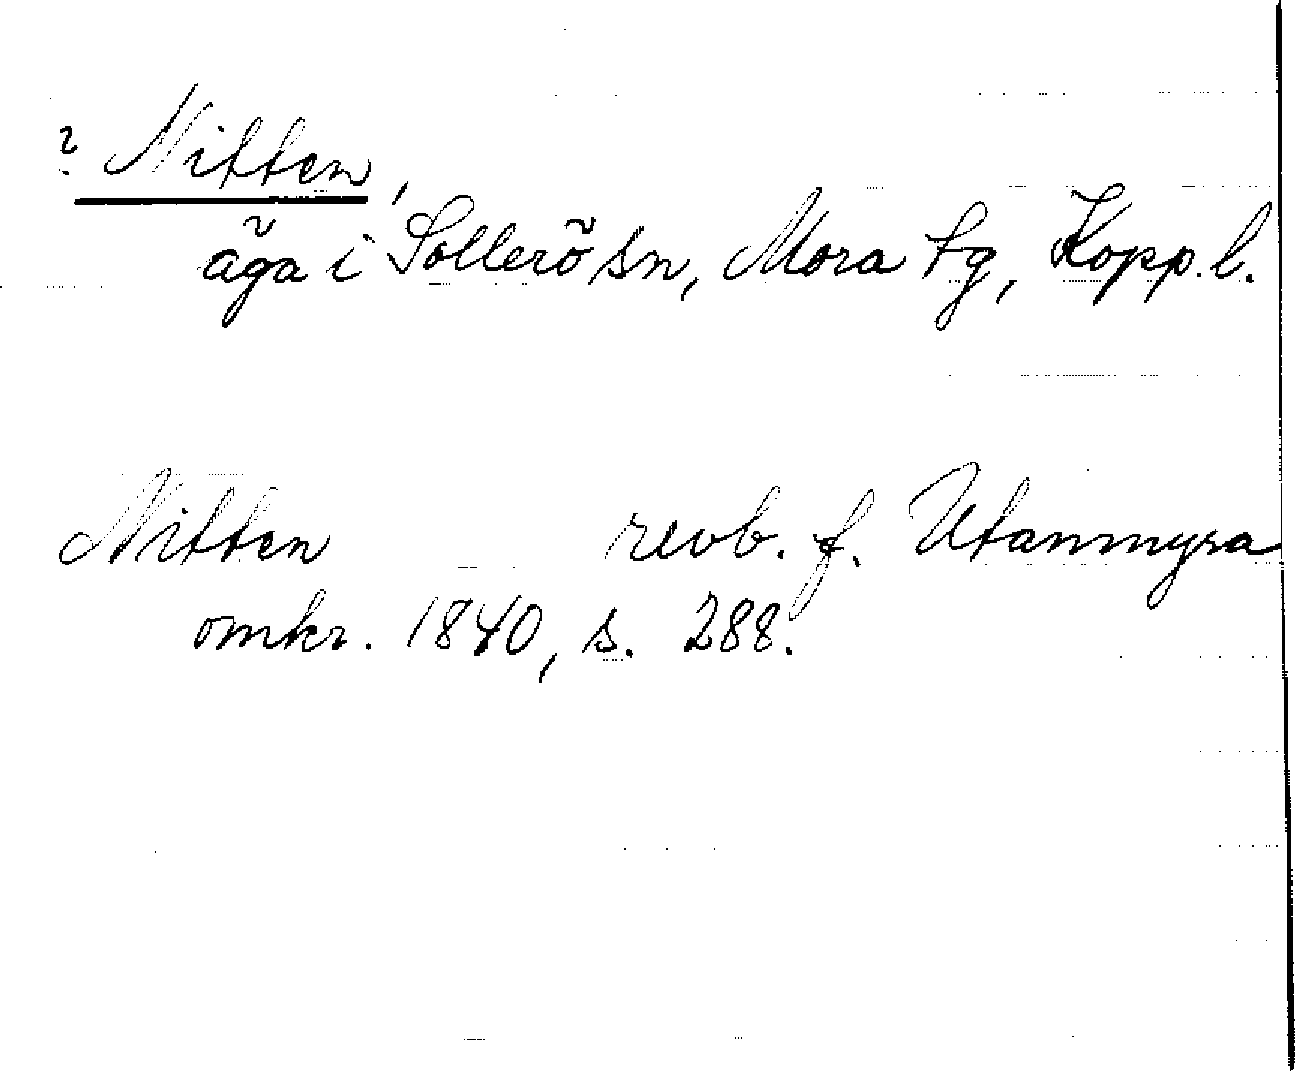 ? Nitten,
äga i Sollerö sn, Mora tg, Kopp. l.
Nitten revb. f. Utanmyra
omkr. 1840, s. 288.